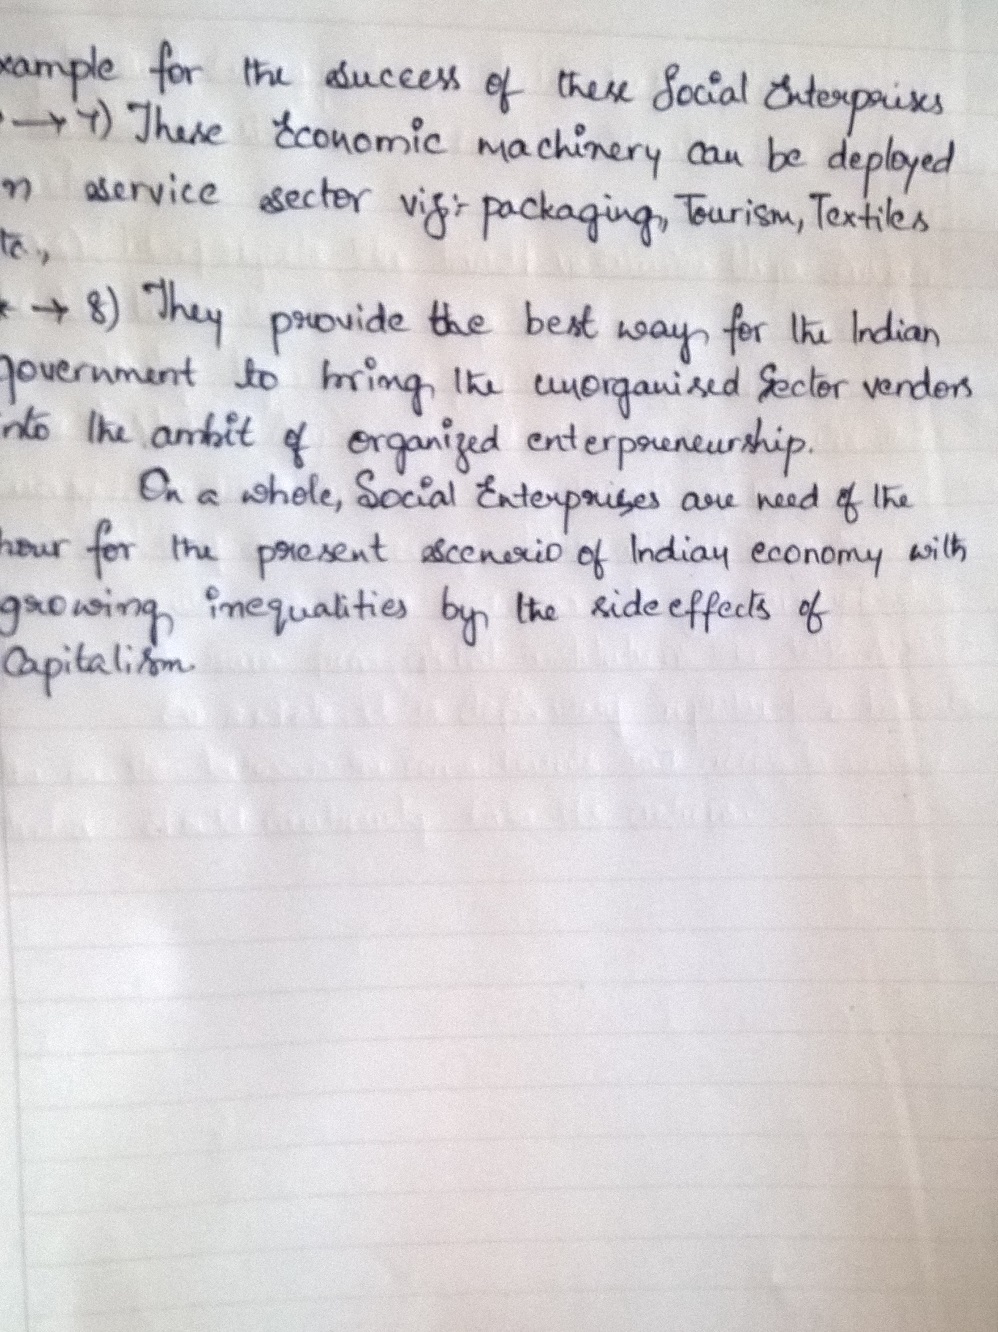 xample for the success of these Social Enterprises
→ 7) These Economic machinery can be deployed
n service sector viz:- packaging, Tourism, Textiles
tc.,
* → 8) They provide the best way for the Indian
government to bring the unorganised Sector vendors
nto the ambit of organized enterpreneurship.
On a whole, Social Enterprises are need of the
hour for the present scenerio of Indian economy with
growing inequalities by the side effects of
Capitalism.